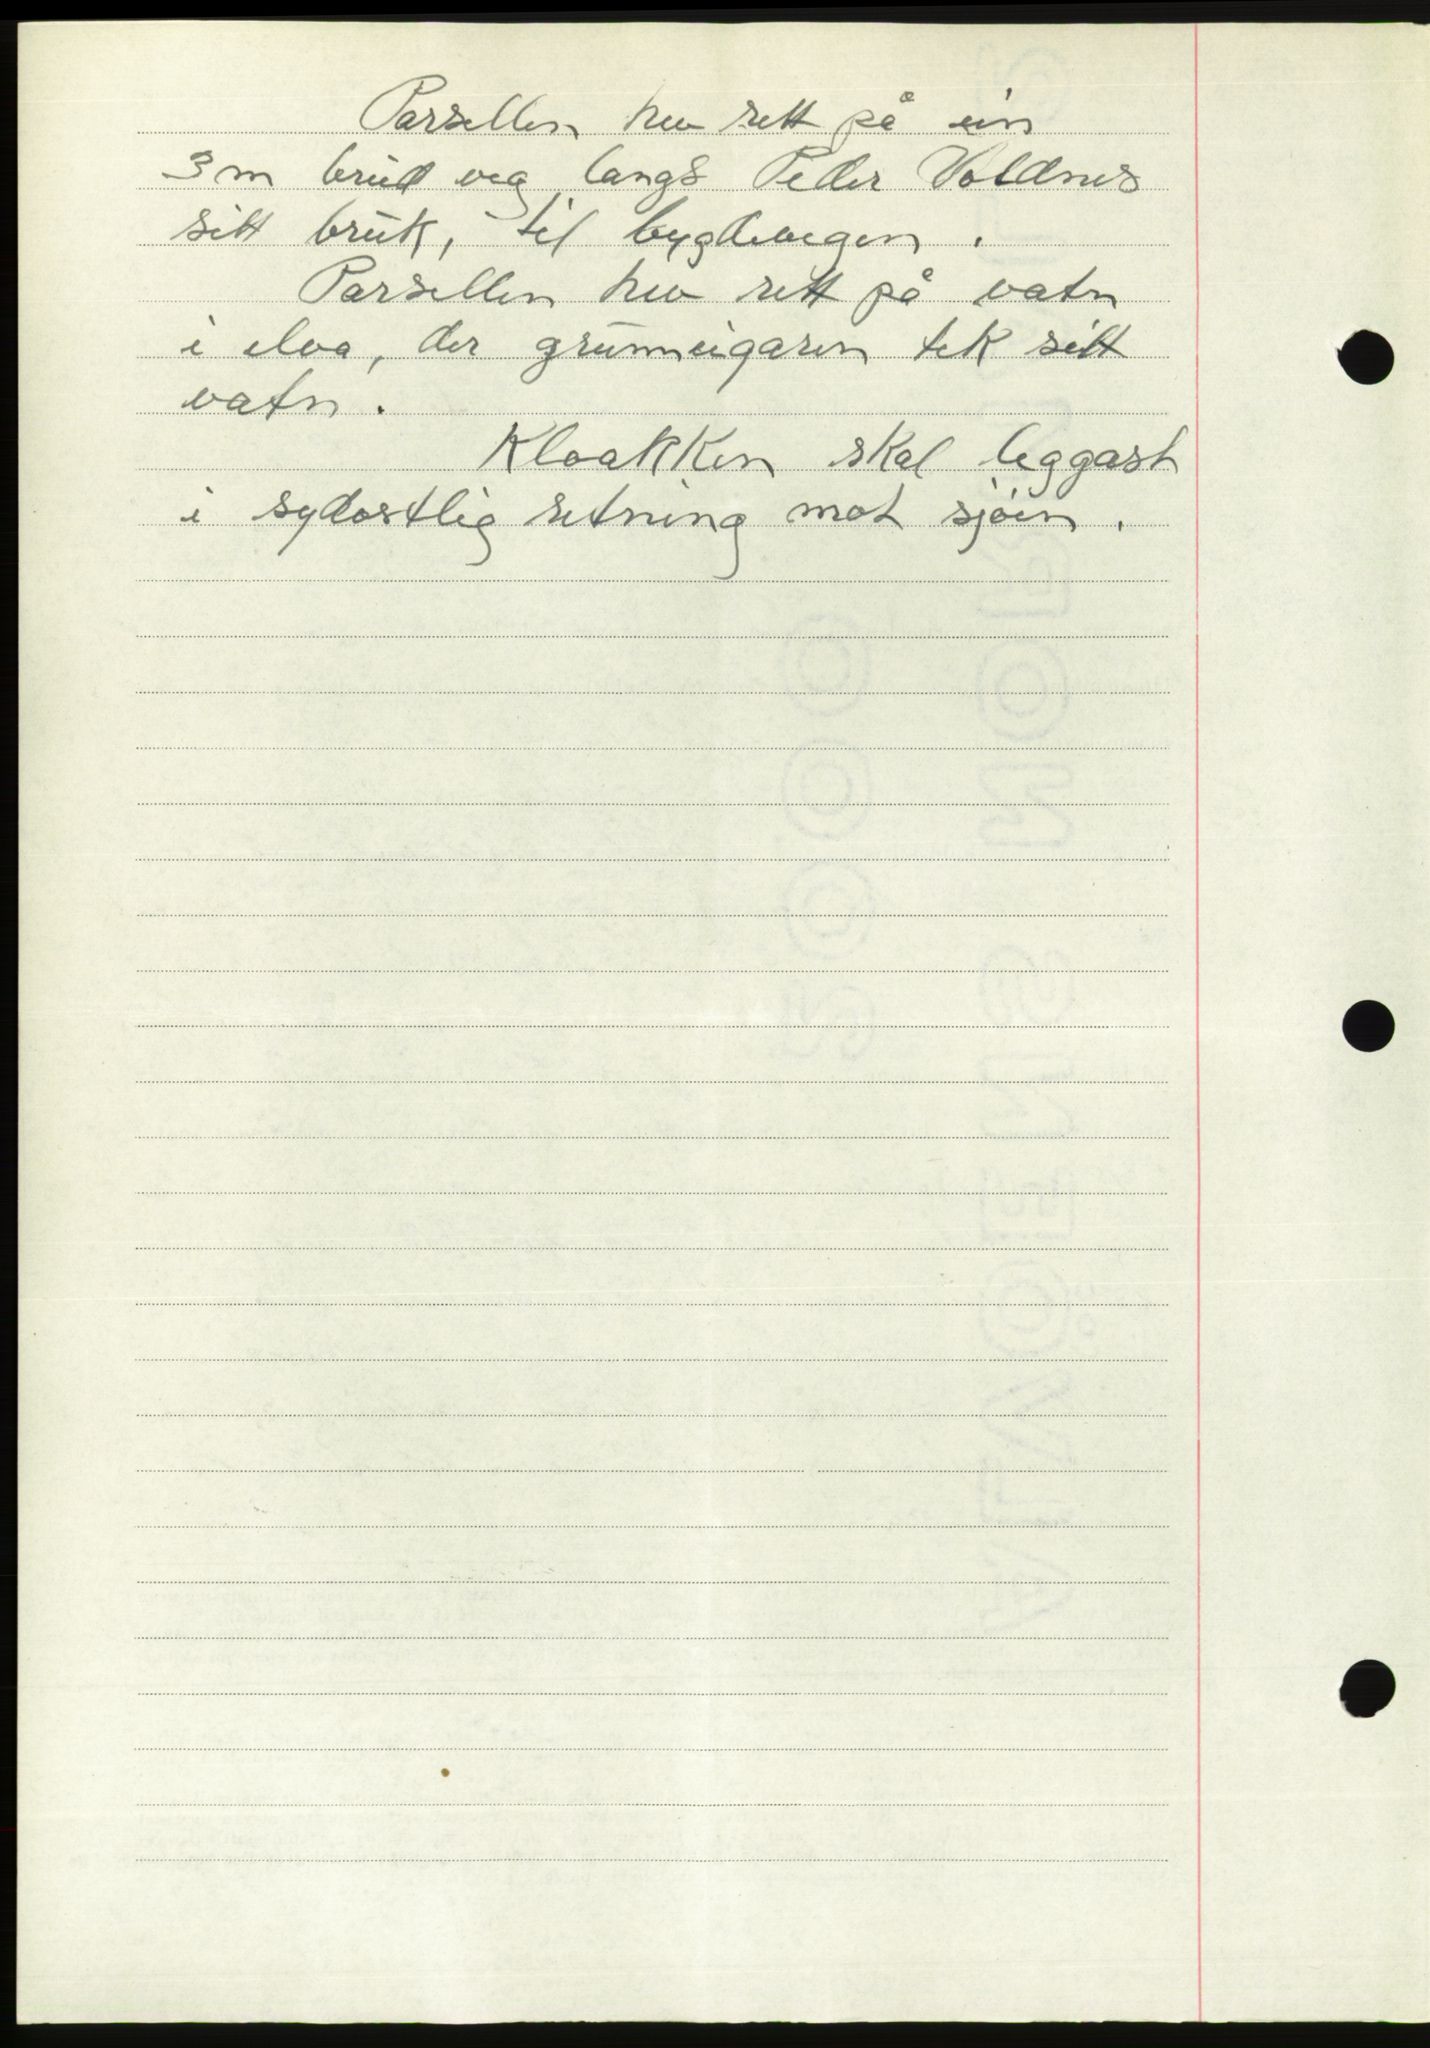 Parsellen hev rett på ein
3 m breid veg langs Peder Voldnes
sitt bruk, til bygdevegen.
Parsellen hev rett på vatn
i elva, der grunneigaren tek sitt
vatn.
Kloakken skal leggast
i sydostlig retning mot sjøen.